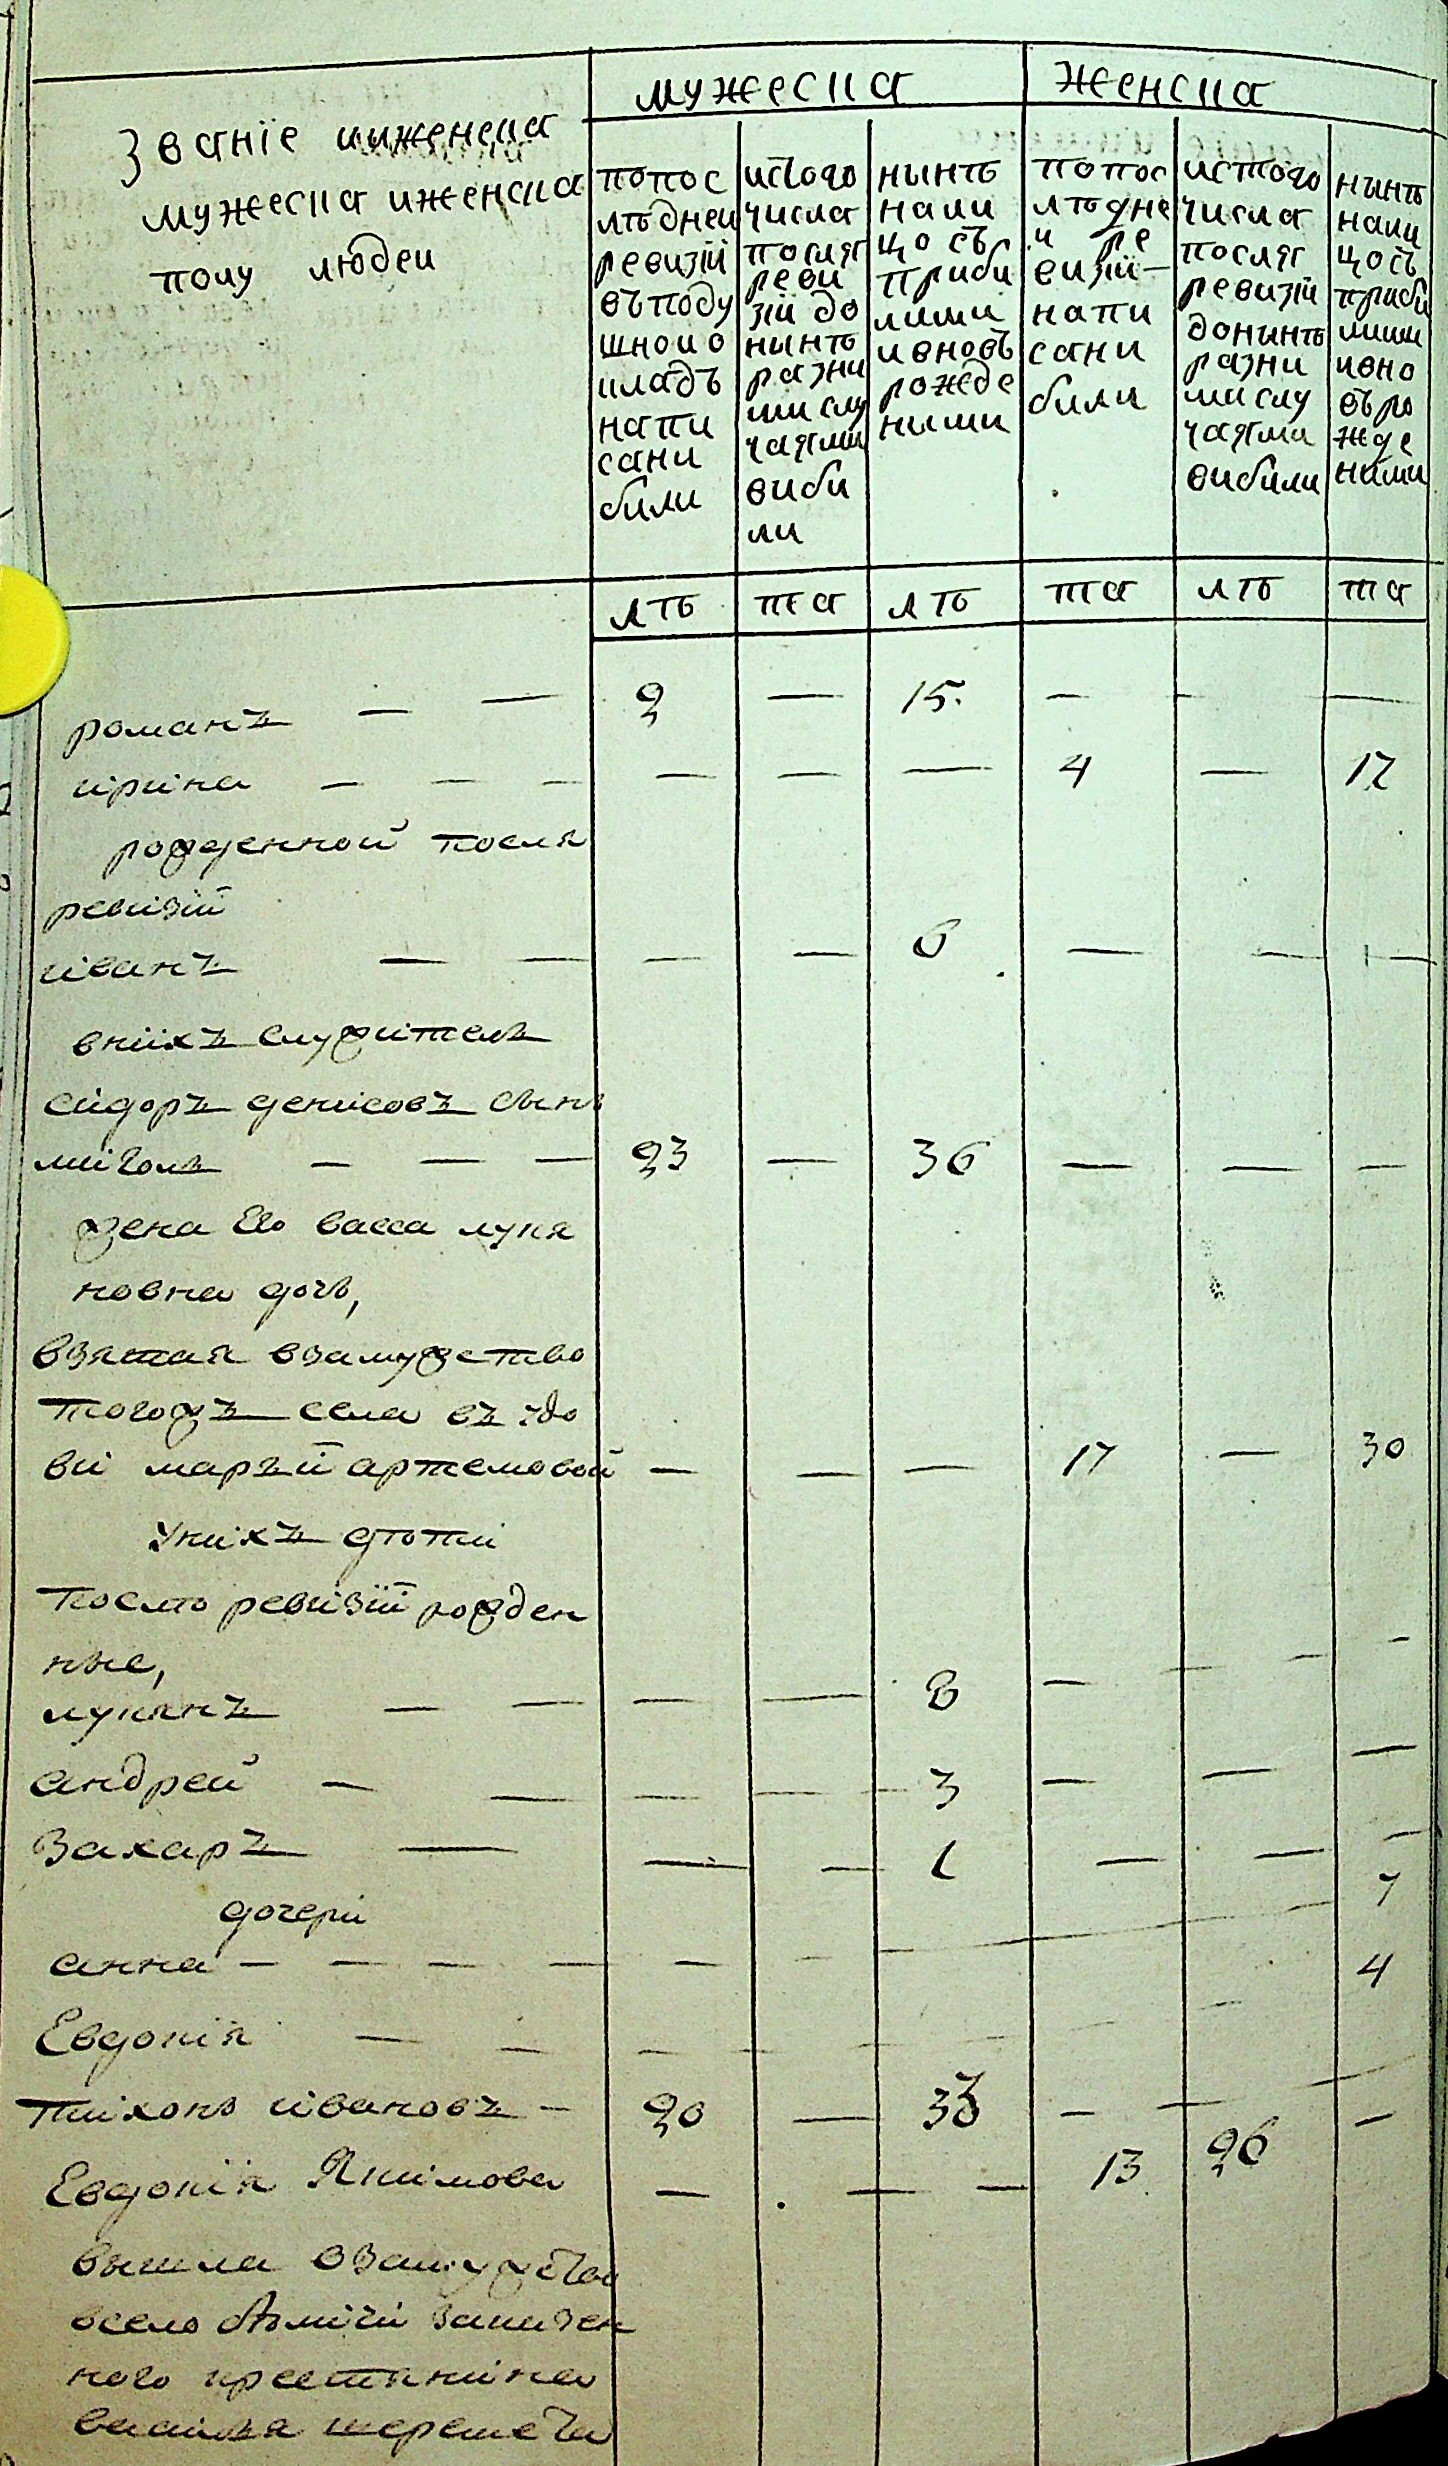 мужеска женска
Званїе ииженска
мужеска иженска
полу людеи
попос
лѣдней
ревизїй
въподу
шномо
кладъ
напи
сани
били
истого
числа
посля
реви
зїй до
нынѣ
разни
ми слу
чаями
виби
ли
нынѣ
нали
цо съ
приби
лими
ивновъ
рожде
ными
попос
лѣдне
и ре
визїй
напи
сани
били
истого
числа
посля
ревизїй
донынѣ
разни
ми слу
чаями
вибили
нынѣ
нали
цо съ
приби
лими
ивно
въро
жде
ними
лѣ та лѣ та лѣ та
романъ — — 2 — 15. — — —
ирина — — — — — — 4 — 12
рожденной посля
ревизїй
иванъ — — — — 6 — — —
внихъ служитель
сидоръ денисовъ сынъ
миголь — — — 23 — 36 — — —
жена Его васса лукя
новна дочь,
взятая взамужство
тогожъ села въ здо
ви марьи артемовой — — — 17 — 30
Унихъ дѣти
послѣ ревизїй рожден
ные,
лукянъ — — — — 8 — — — —
андрей — — — — 3 — — —
Захаръ — — — 1 — — —
дочери 7
анна — — — — — — — — 4
Евдокия — — — — — — —
тихонъ ивановъ — 20 — 33 — — —
Евдокия Якимова — — — 13 26
вышла взамужство
всело казен
ного крестянина
василя шеремета